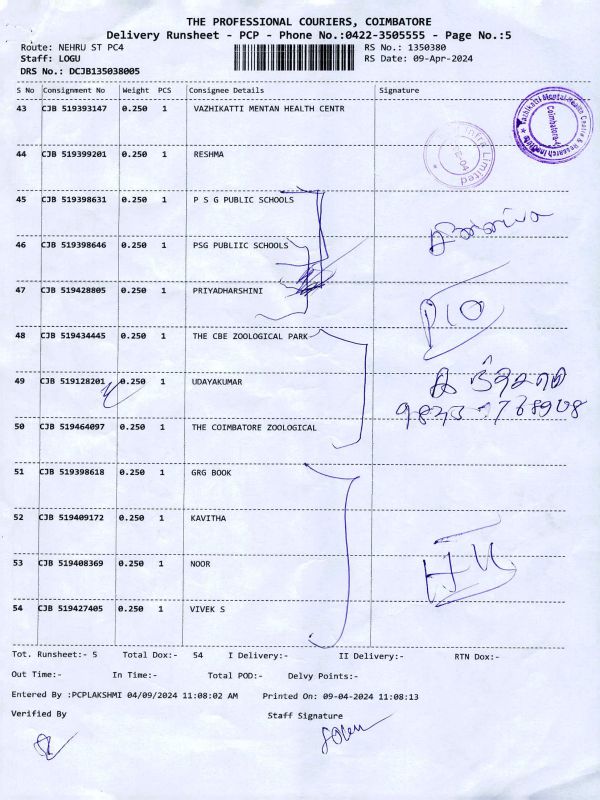 THE PROFESSIONAL COURIERS, COIMBATORE
Delivery Runsheet - PCP - Phone No.:0422-3505555 - Page No.:5
Route: NEHRU ST PC4 RS No.: 1350380
Staff: LOGU RS Date: 09-Apr-2024
DRS No.: DCJB135038005
S No Consignment No Weight PCS Consignee Details Signature
43 CJB 519393147 0.250 1 VAZHIKATTI MENTAN HEALTH CENTR
Vazhikatti Mental Health Centre & Research Institute
Coimbatore-4
Limited
44 CJB 519399201 0.250 1 RESHMA
45 CJB 519398631 0.250 1 P S G PUBLIC SCHOOLS
46 CJB 519398646 0.250 1 PSG PUBLIIC SCHOOLS
47 CJB 519428805 0.250 1 PRIYADHARSHINI
48 CJB 519434445 0.250 1 THE CBE ZOOLOGICAL PARK
49 CJB 519128201 0.250 1 UDAYAKUMAR
50 CJB 519464097 0.250 1 THE COIMBATORE ZOOLOGICAL
51 CJB 519398618 0.250 1 GRG BOOK
52 CJB 519409172 0.250 1 KAVITHA
53 CJB 519408369 0.250 1 NOOR
54 CJB 519427405 0.250 1 VIVEK S
Tot. Runsheet:- 5 Total Dox:- 54 I Delivery:- II Delivery:- RTN Dox:-
Out Time:- In Time:- Total POD:- Delvy Points:-
Entered By :PCPLAKSHMI 04/09/2024 11:08:02 AM Printed On: 09-04-2024 11:08:13
Verified By Staff Signature